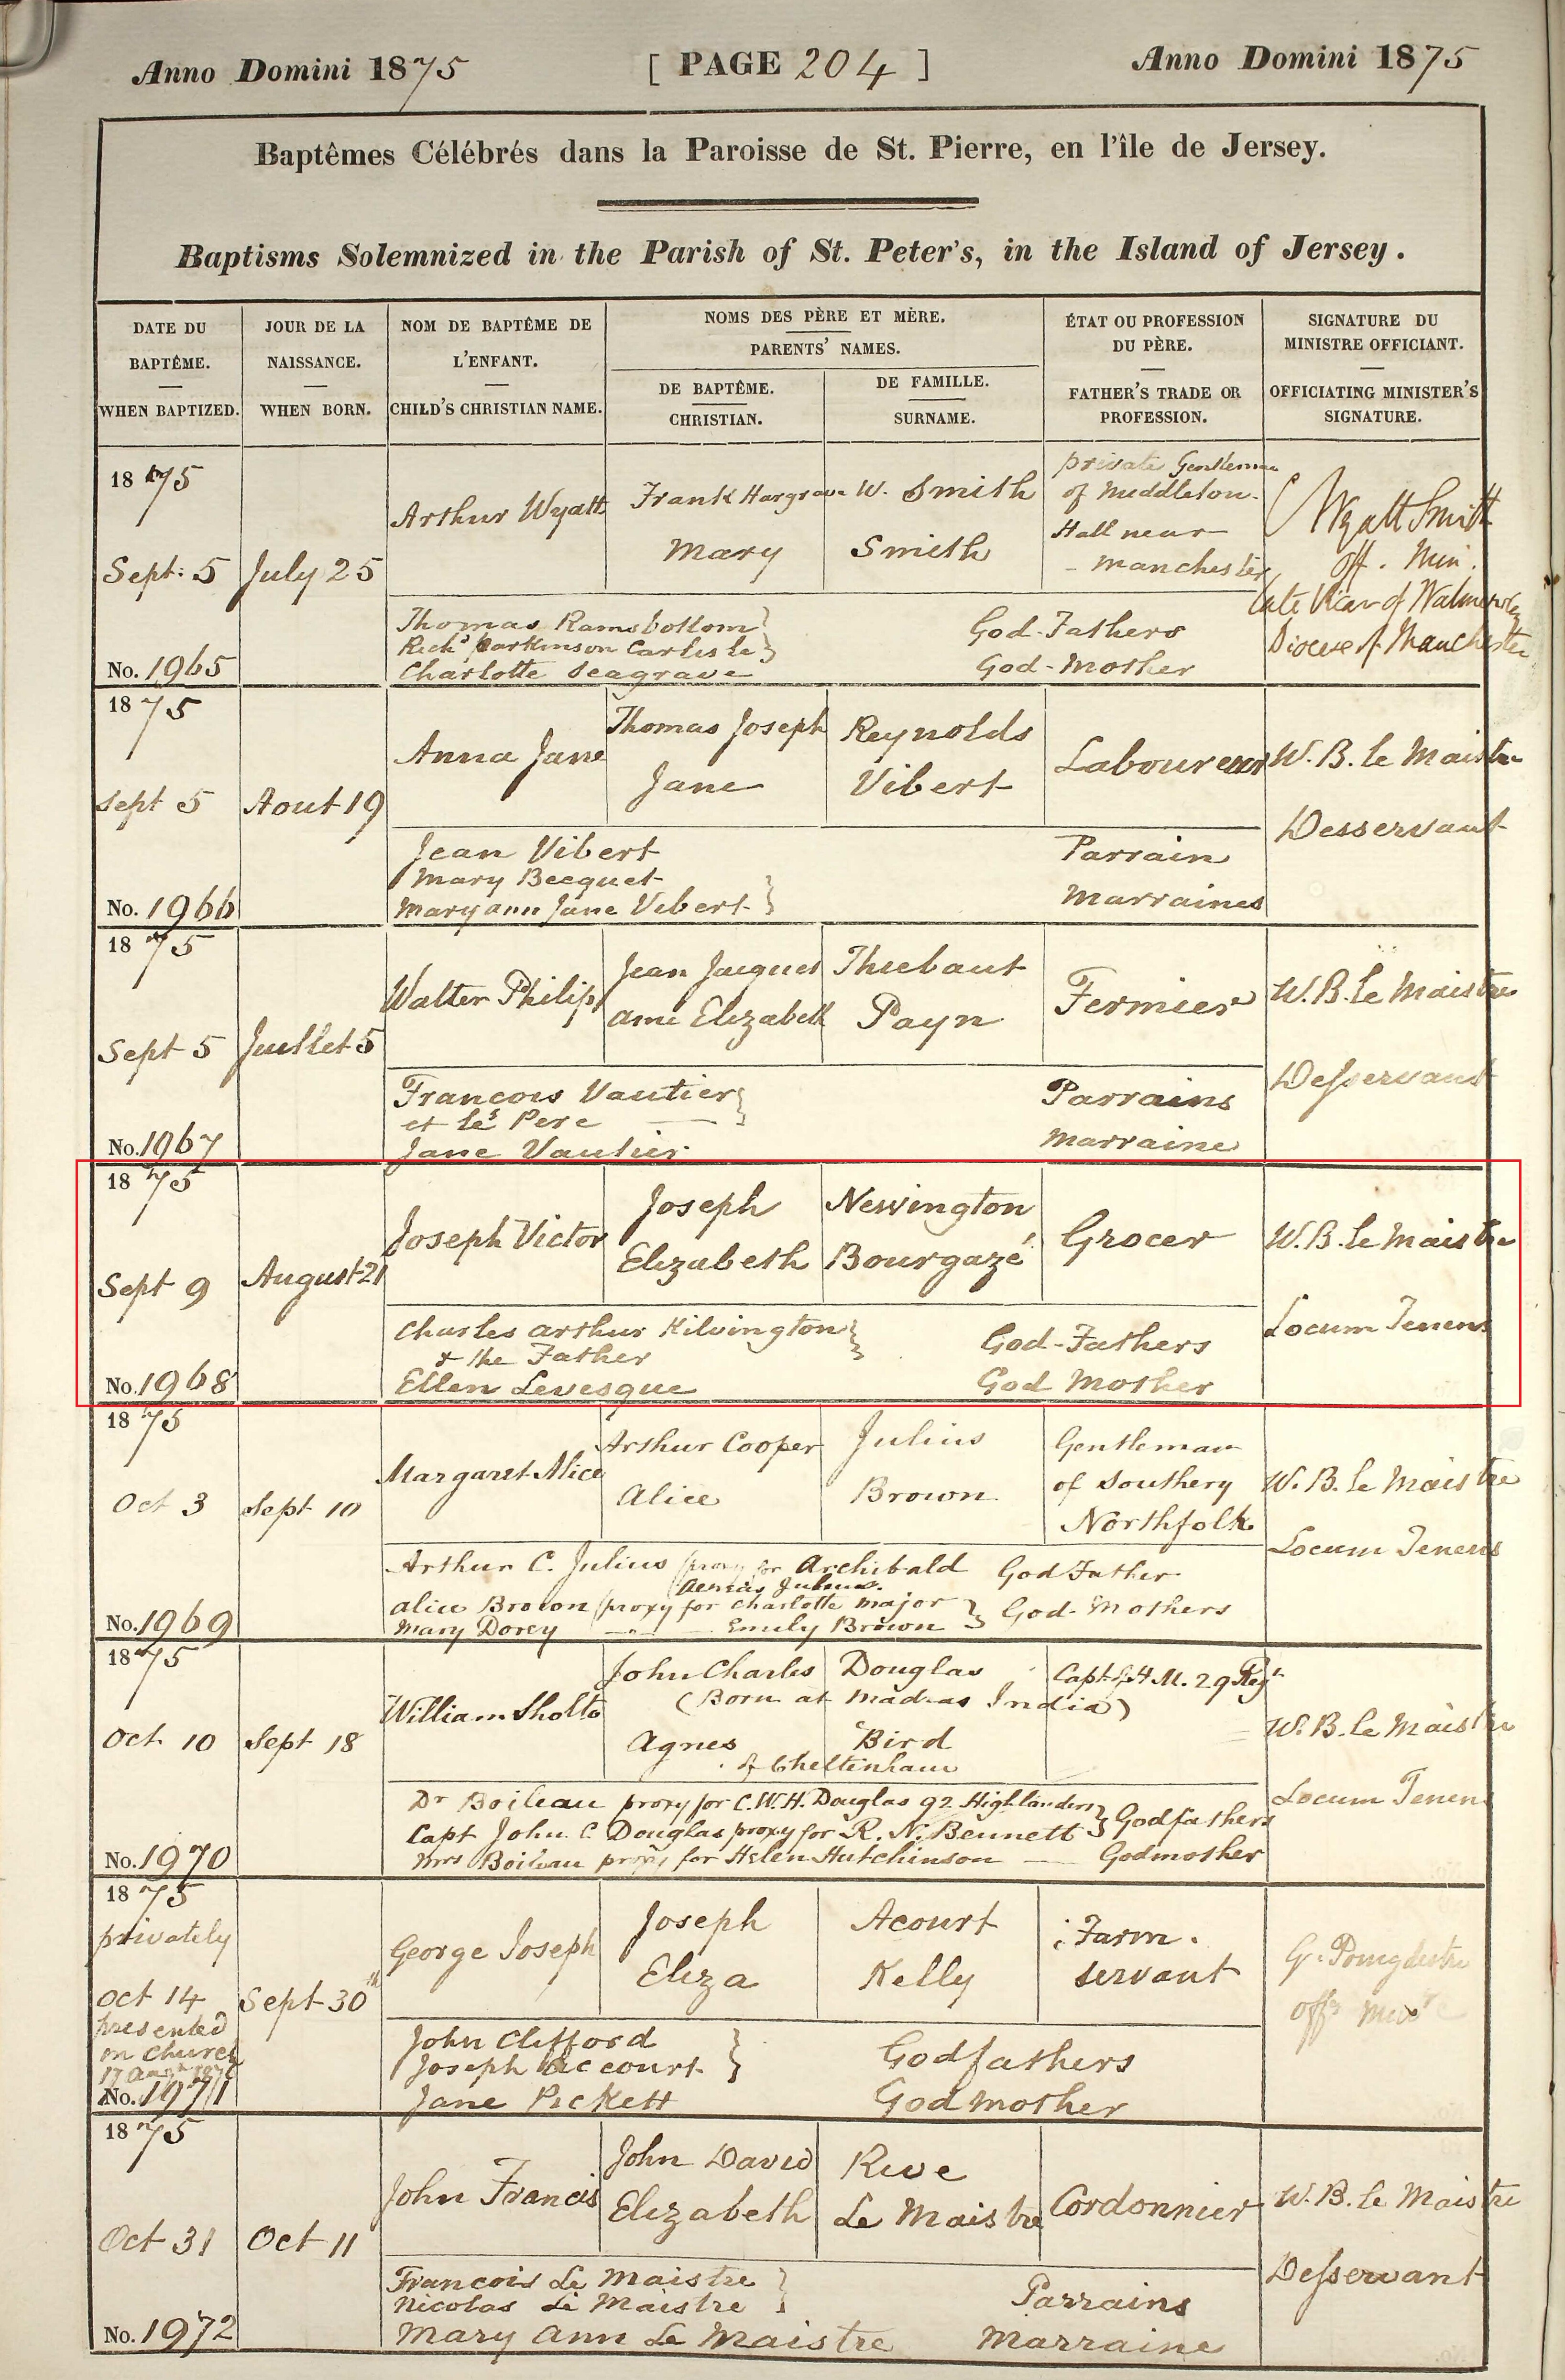 Anno Domini 1875
[ PAGE 204 ]
Anno Domini 1875
Baptêmes Célébrés dans la Paroisse de St. Pierre, en l'île de Jersey.
Baptisms Solemnized in the Parish of St. Peter's, in the Island of Jersey.
DATE DU BAPTÊME.
WHEN BAPTIZED.
JOUR DE LA NAISSANCE.
WHEN BORN.
NOM DE BAPTÊME DE L'ENFANT.
CHILD'S CHRISTIAN NAME.
NOMS DES PÈRE ET MÈRE.
PARENTS' NAMES.
DE BAPTÊME.
CHRISTIAN.
DE FAMILLE.
SURNAME.
ÉTAT OU PROFESSION DU PÈRE.
FATHER'S TRADE OR PROFESSION.
SIGNATURE DU MINISTRE OFFICIANT.
OFFICIATING MINISTER'S SIGNATURE.
1875
Sept: 5
No. 1965
July 25
Arthur Wyatt
Frank Hargrave W. Smith
Mary Smith
private Gentleman
of Middleton-
Hall near
- Manchester
Wyatt Smith
Off. Min.
late Vicar of Walmersley
Diocese of Manchester
Thomas Ramsbottom
Richd Parkinson Carlisle
God-Fathers
Charlotte Seagrave
God-Mother
1875
Sept 5
No. 1966
Aout 19
Anna Jane
Thomas Joseph Reynolds
Jane Vibert
Laboureur
W. B. Le Maistre
Desservant
Jean Vibert Parrain
Mary Becquet
Mary Ann Jane Vibert Marraines
1875
Sept 5
No. 1967
Juillet 5
Walter Philip
Jean Jacques Thiebaut
Ame Elizabeth Payn
Fermier
W. B. Le Maistre
Desservant
Francois Vautier
et le Pere
Parrains
Jane Vautier Marraine
1875
Sept 9
No. 1968
August 21
Joseph Victor
Joseph Newington
Elizabeth Bourgazé
Grocer
W. B. Le Maistre
Locum Tenens
Charles Arthur Kilvington
& the Father
God-Fathers
Ellen Levesque God Mother
1875
Oct 3
No. 1969
Sept 10
Margaret Alice
Arthur Cooper Julius
Alice Brown
Gentleman
of Southery
Northfolk
W. B. Le Maistre
Locum Tenens
Arthur C. Julius proxy for Archibald
Aeneas Julius.
God Father
Alice Brown proxy for Charlotte Major
Mary Dorey — Emily Brown
God-Mothers
1875
Oct 10
No. 1970
Sept 18
William Sholto
John Charles Douglas
(Born at Madras India)
Agnes Bird
of Cheltenham
Capt of H.M. 29 Regt
W. B. Le Maistre
Locum Tenens
Dr Boileau proxy for C.W.H. Douglas 92 Highlanders
Capt John C. Douglas proxy for R. N. Bennett
Godfathers
Mrs Boileau proxy for Helen Hutchinson — Godmother
1875
privately
Oct 14
presented
in Church
No. 1971
Sept 30th
George Joseph
Joseph Acourt
Eliza Kelly
Farm.
servant
G. Poingdestre
John Clifford
Joseph Accourt
Godfathers
Jane Pickett
Godmother
1875
Oct 31
No. 1972
Oct 11
John Francis
John David Rive
Elizabeth Le Maistre
Cordonnier
W. B. Le Maistre
Desservant
Francois Le Maistre
Nicolas Le Maistre
Parrains
Mary Ann Le Maistre Marraine